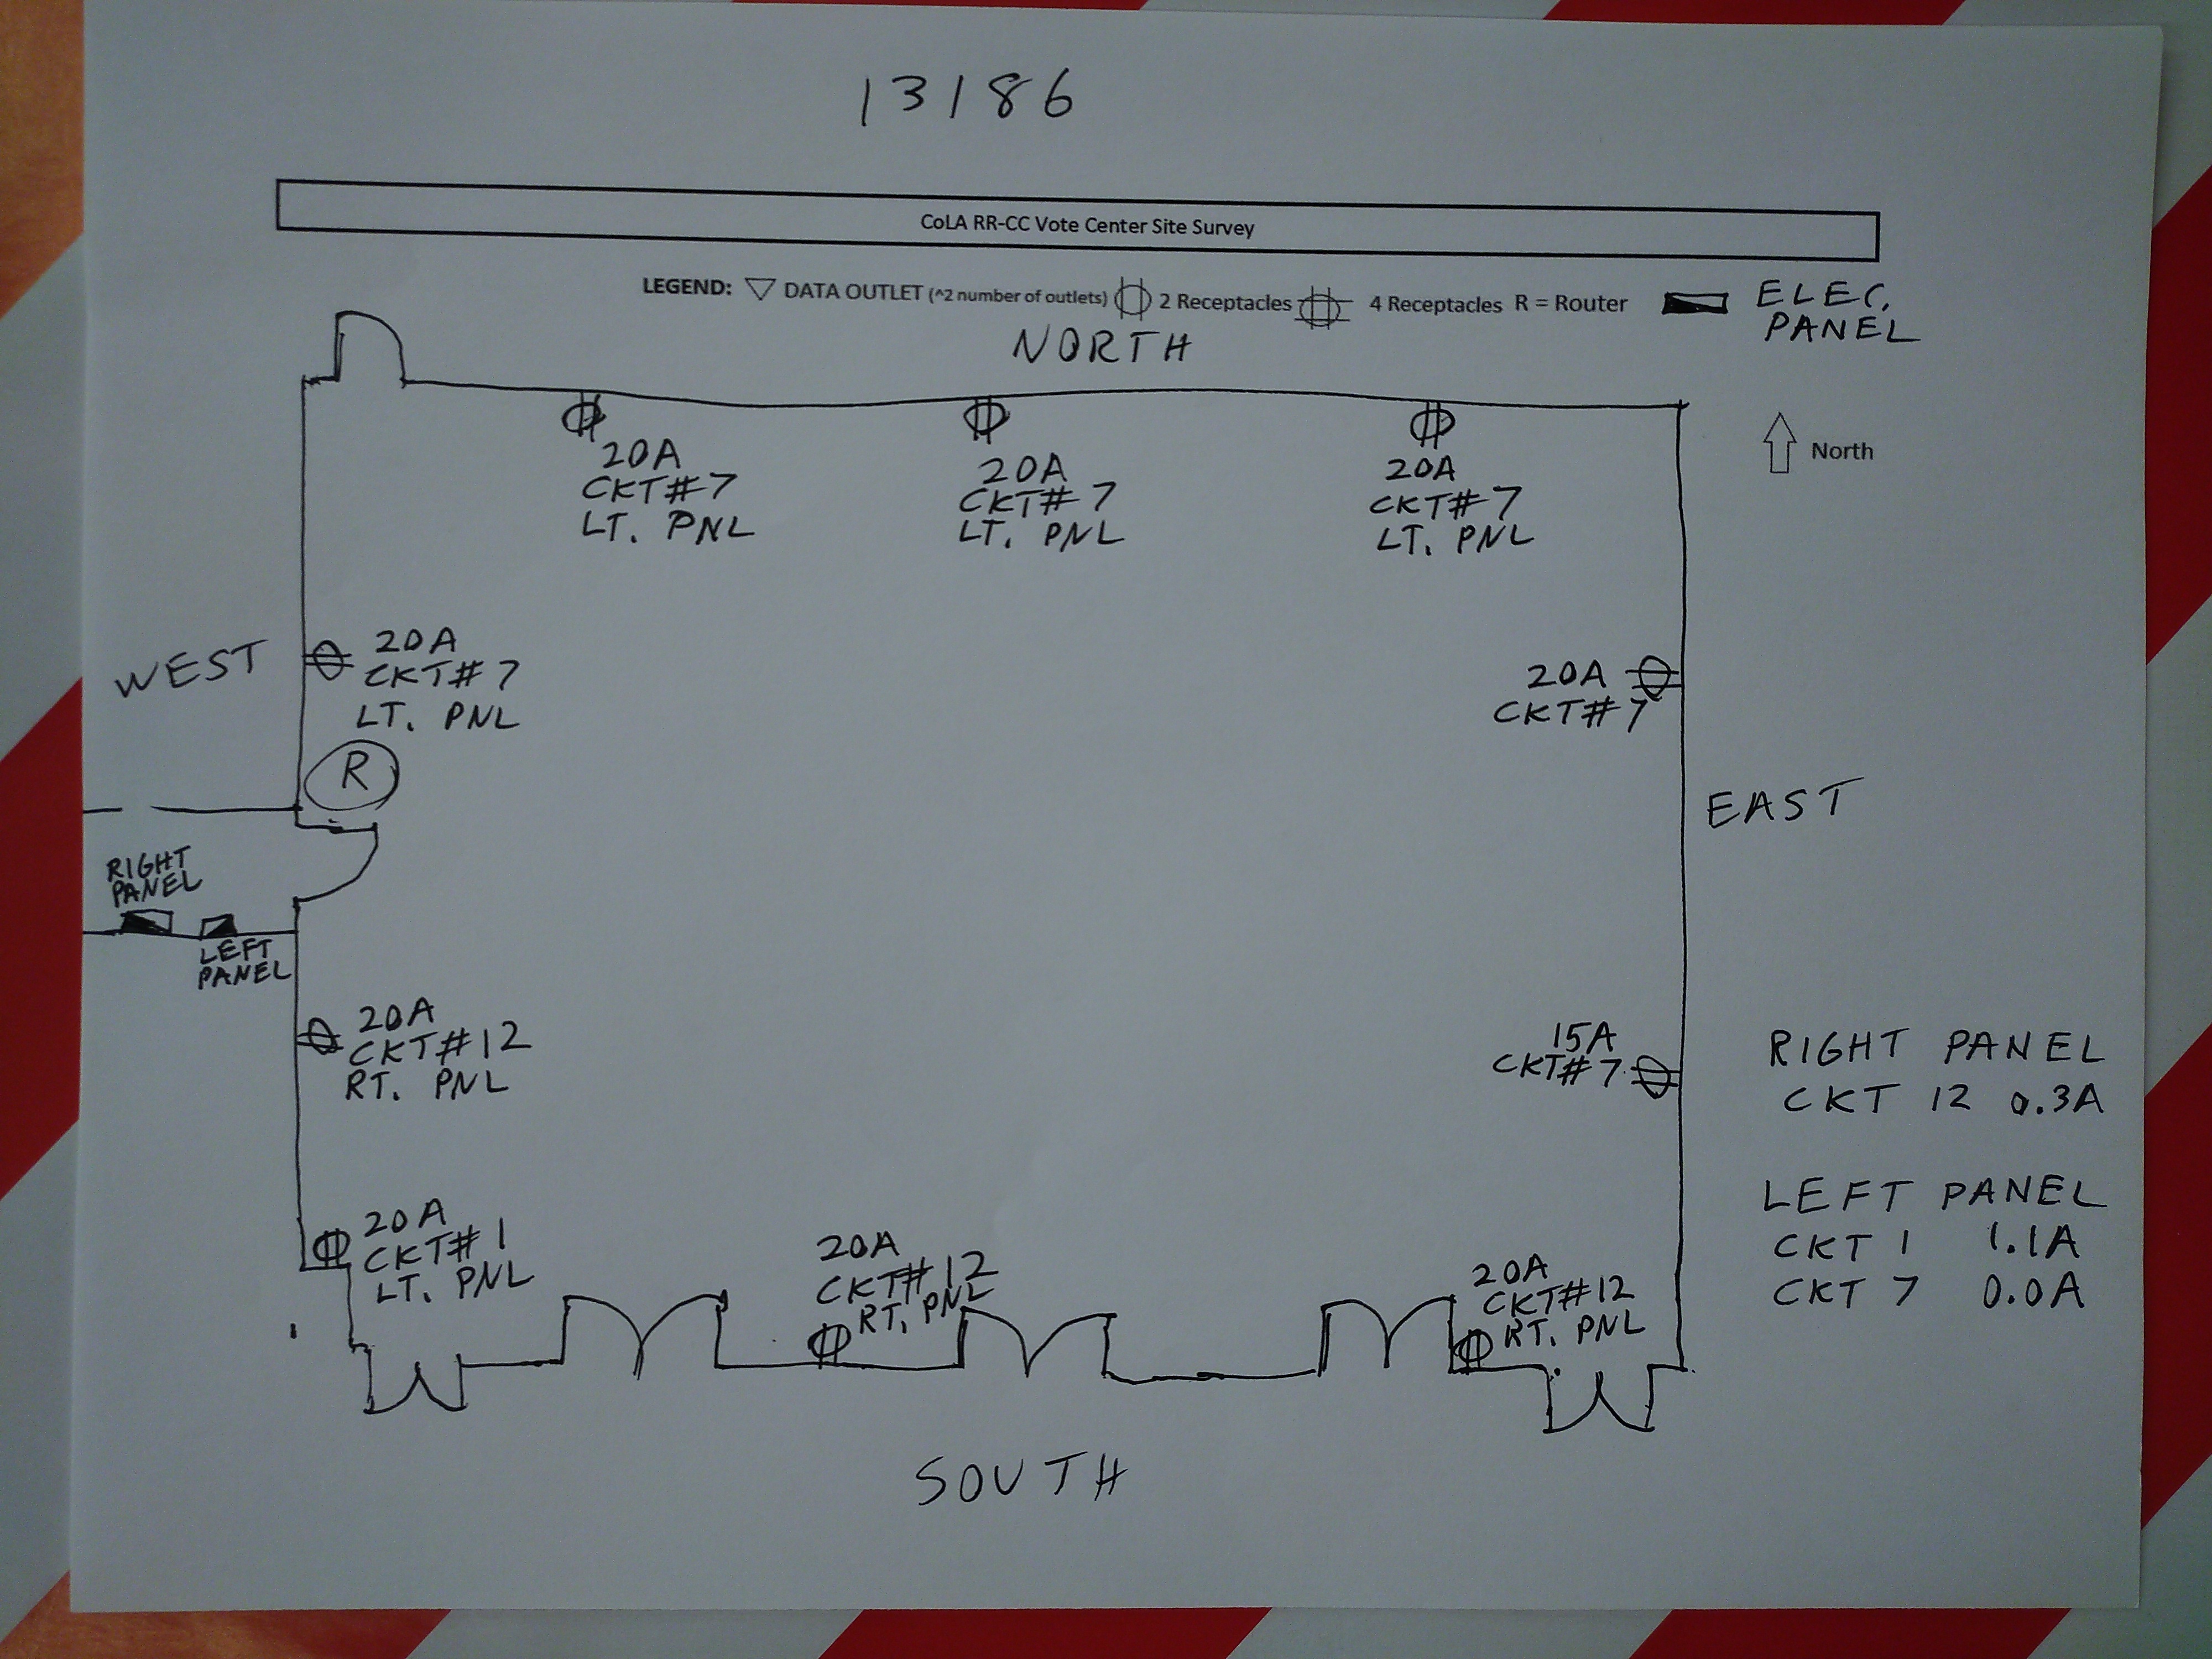 13186
CoLA RR-CC Vote Center Site Survey
LEGEND: ▽ DATA OUTLET (^2 number of outlets) 2 Receptacles 4 Receptacles R = Router
ELEC.
PANEL
NORTH
North
20A
CKT#7
LT. PNL
20A
CKT#7
LT. PNL
20A
CKT#7
LT. PNL
WEST
20A
CKT#7
LT. PNL
20A
CKT#7
R
EAST
RIGHT
PANEL
LEFT
PANEL
20A
CKT#12
RT. PNL
15A
CKT#7
RIGHT PANEL
CKT 12 0.3A
LEFT PANEL
CKT 1 1.1A
CKT 7 0.0A
20A
CKT#1
LT. PNL
20A
CKT#12
RT. PNL
20A
CKT#12
RT. PNL
SOUTH